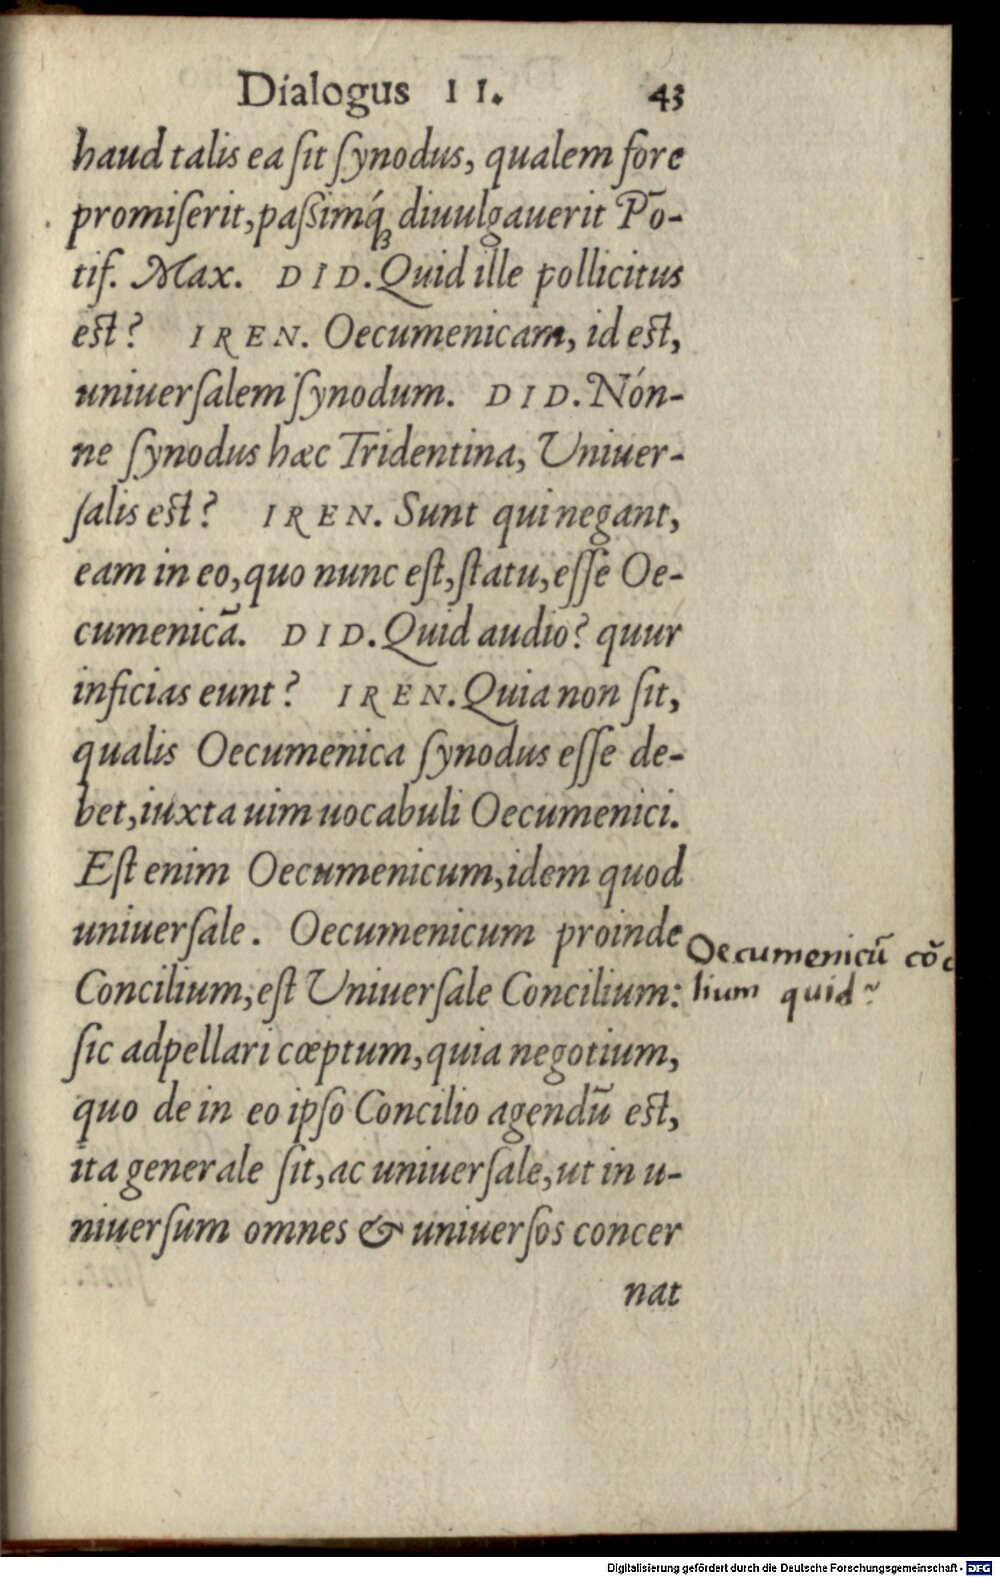 Dialogus II. 43
haud talis ea ſit ſynodus, qualem fore
promiſerit, paſsimq́ꝫ diuulgauerit Pō-
tif. Max. DID. Quid ille pollicitus
eſt? IREN. Oecumenicam, id eſt,
uniuerſalem ſynodum. DID. Nón-
ne ſynodus hæc Tridentina, Uniuer-
ſalis eſt? IREN. Sunt qui negant,
eam in eo, quo nunc eſt, ſtatu, eſſe Oe-
cumenicā. DID. Quid audio? quur
inficias eunt? IREN. Quia non ſit,
qualis Oecumenica ſynodus eſſe de-
bet, iuxta uim uocabuli Oecumenici.
Eſt enim Oecumenicum, idem quod
uniuerſale. Oecumenicum proinde
Concilium, eſt Uniuerſale Concilium:
ſic adpellari cœptum, quia negotium,
quo de in eo ipſo Concilio agendū eſt,
ita generale ſit, ac uniuerſale, ut in u-
niuerſum omnes & uniuerſos concer
nat
Oecumenicū cōc
lium quid~
Digitalisierung gefördert durch die Deutsche Forschungsgemeinschaft - DFG